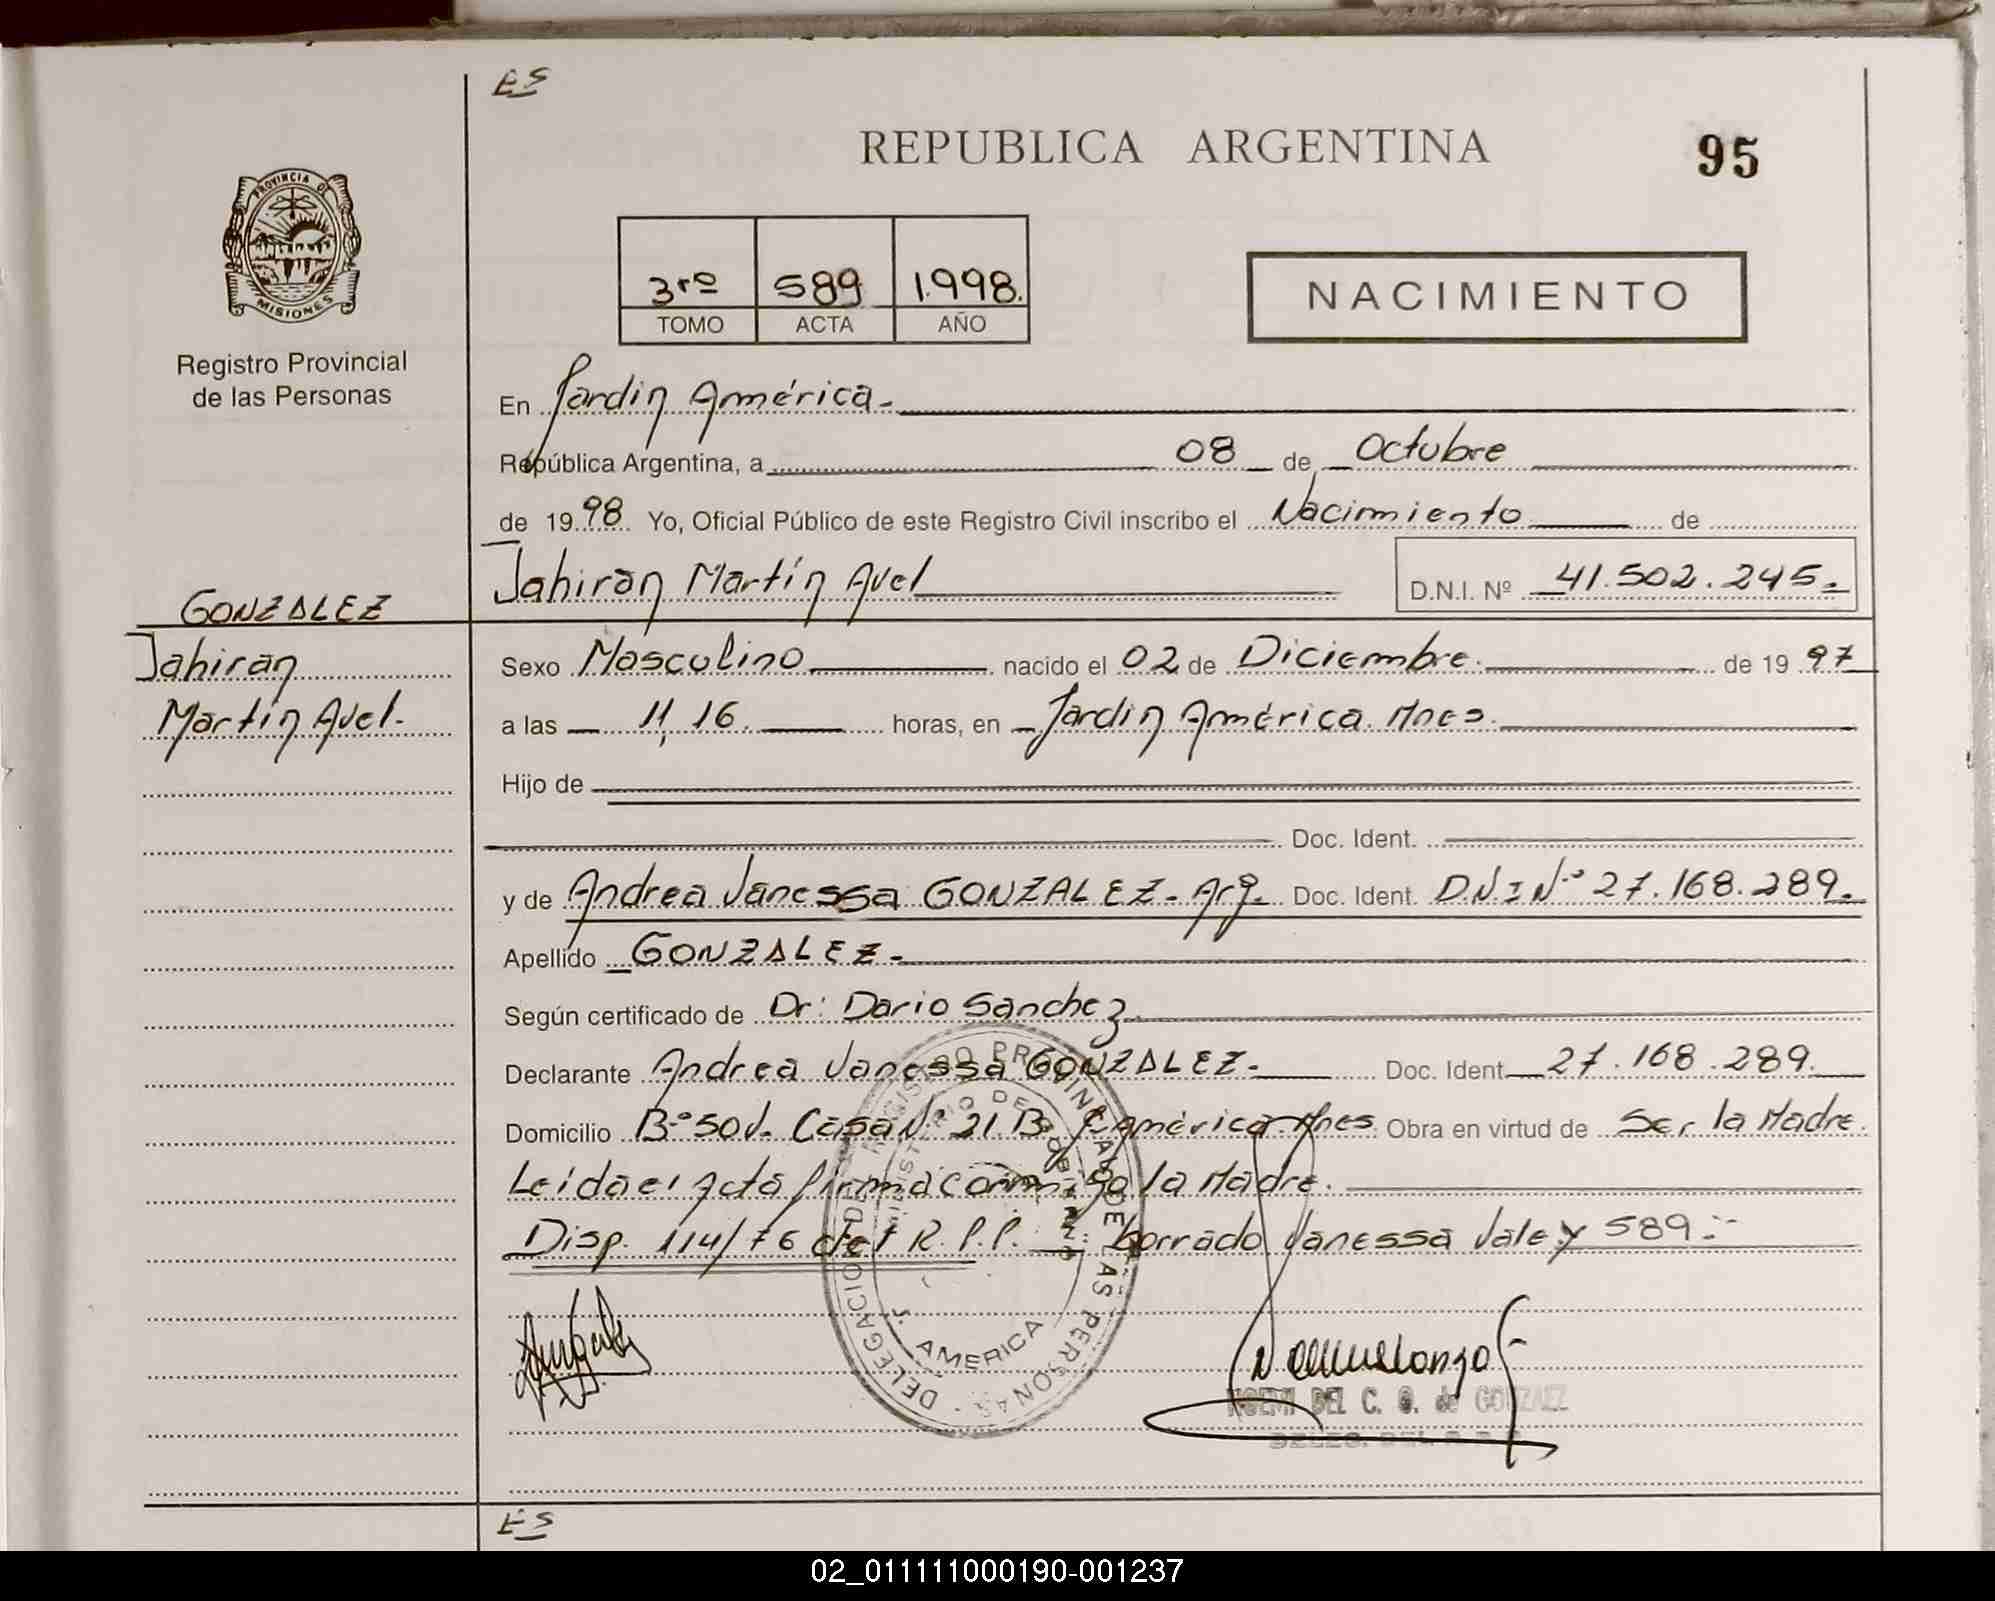 ES
REPUBLICA ARGENTINA
95
PROVINCIA DE
MISIONES
Registro Provincial
de las Personas
3ro 589 1.998.
TOMO ACTA AÑO
NACIMIENTO
En Jardin América.-
República Argentina, a 08 de Octubre
de 1998 Yo, Oficial Público de este Registro Civil inscribo el Nacimiento de
Jahiran Martín Avel D.N.I. Nº 41.502.245.-
GONZALEZ
Jahiran
Martín Avel.-
Sexo Masculino nacido el 02 de Diciembre. de 1997
a las 11,16. horas, en Jardin América. Mnes.
Hijo de
Doc. Ident.
y de Andrea Vanessa GONZALEZ - Arg. Doc. Ident. D.N.I Nº 27.168.289.-
Apellido GONZALEZ.-
Según certificado de Dr: Dario Sanchez.
Declarante Andrea Vanessa GONZALEZ.- Doc. Ident. 27.168.289.
Domicilio Bº 50 V. Casa Nº 21 J. América Mnes. Obra en virtud de Ser la Madre.
Leida el Acta firma conmigo la Madre.
Disp. 114/76 del R.P.P. borrado Vanessa Vale y 589.-
DELEGACION DEL REGISTRO PROVINCIAL DE LAS PERSONAS
MINISTERIO DE GOBIERNO
J. AMERICA
NOEMI DEL C. G. de GONZALEZ
ES
02_011111000190-001237